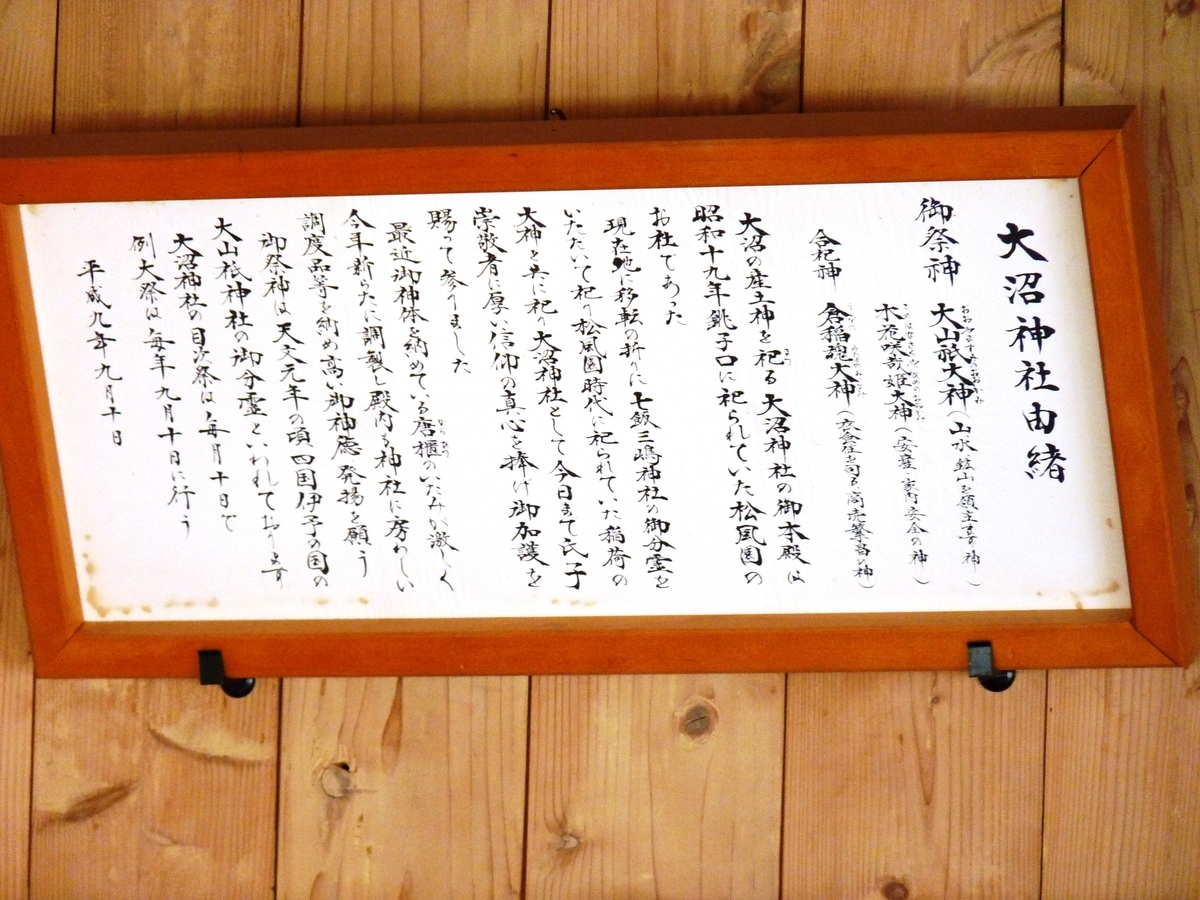 大沼神社由緒
御祭神 大山祇大神(山水鉱山を領主ます神)
木花咲哉姫大神(安産・家内安全の神)
合祀神 倉稲魂大神(衣食住を司る商売繁昌の神)
大沼の産土神を祀る大沼神社の御本殿は
昭和十九年銚子口に祀られていた松風園の
お社であった
現在地に移転の折りに七飯三嶋神社の御分霊を
いただいて祀り松風園時代に祀られていた稲荷の
大神と共に祀り大沼神社として今日まで氏子
崇敬者に厚い信仰の真心を捧げ御加護を
賜って参りました
最近御神体を納めている唐櫃のいたみが激しく
今年新らたに調製し殿内も神社に房わしい
調度品等を納め高い御神徳発揚を願う
御祭神は天文元年の頃四国伊予の国の
大山祇神社の御分霊といわれております
大沼神社の月次祭は毎月十日で
例大祭は毎年九月十日に行う
平成九年九月十日